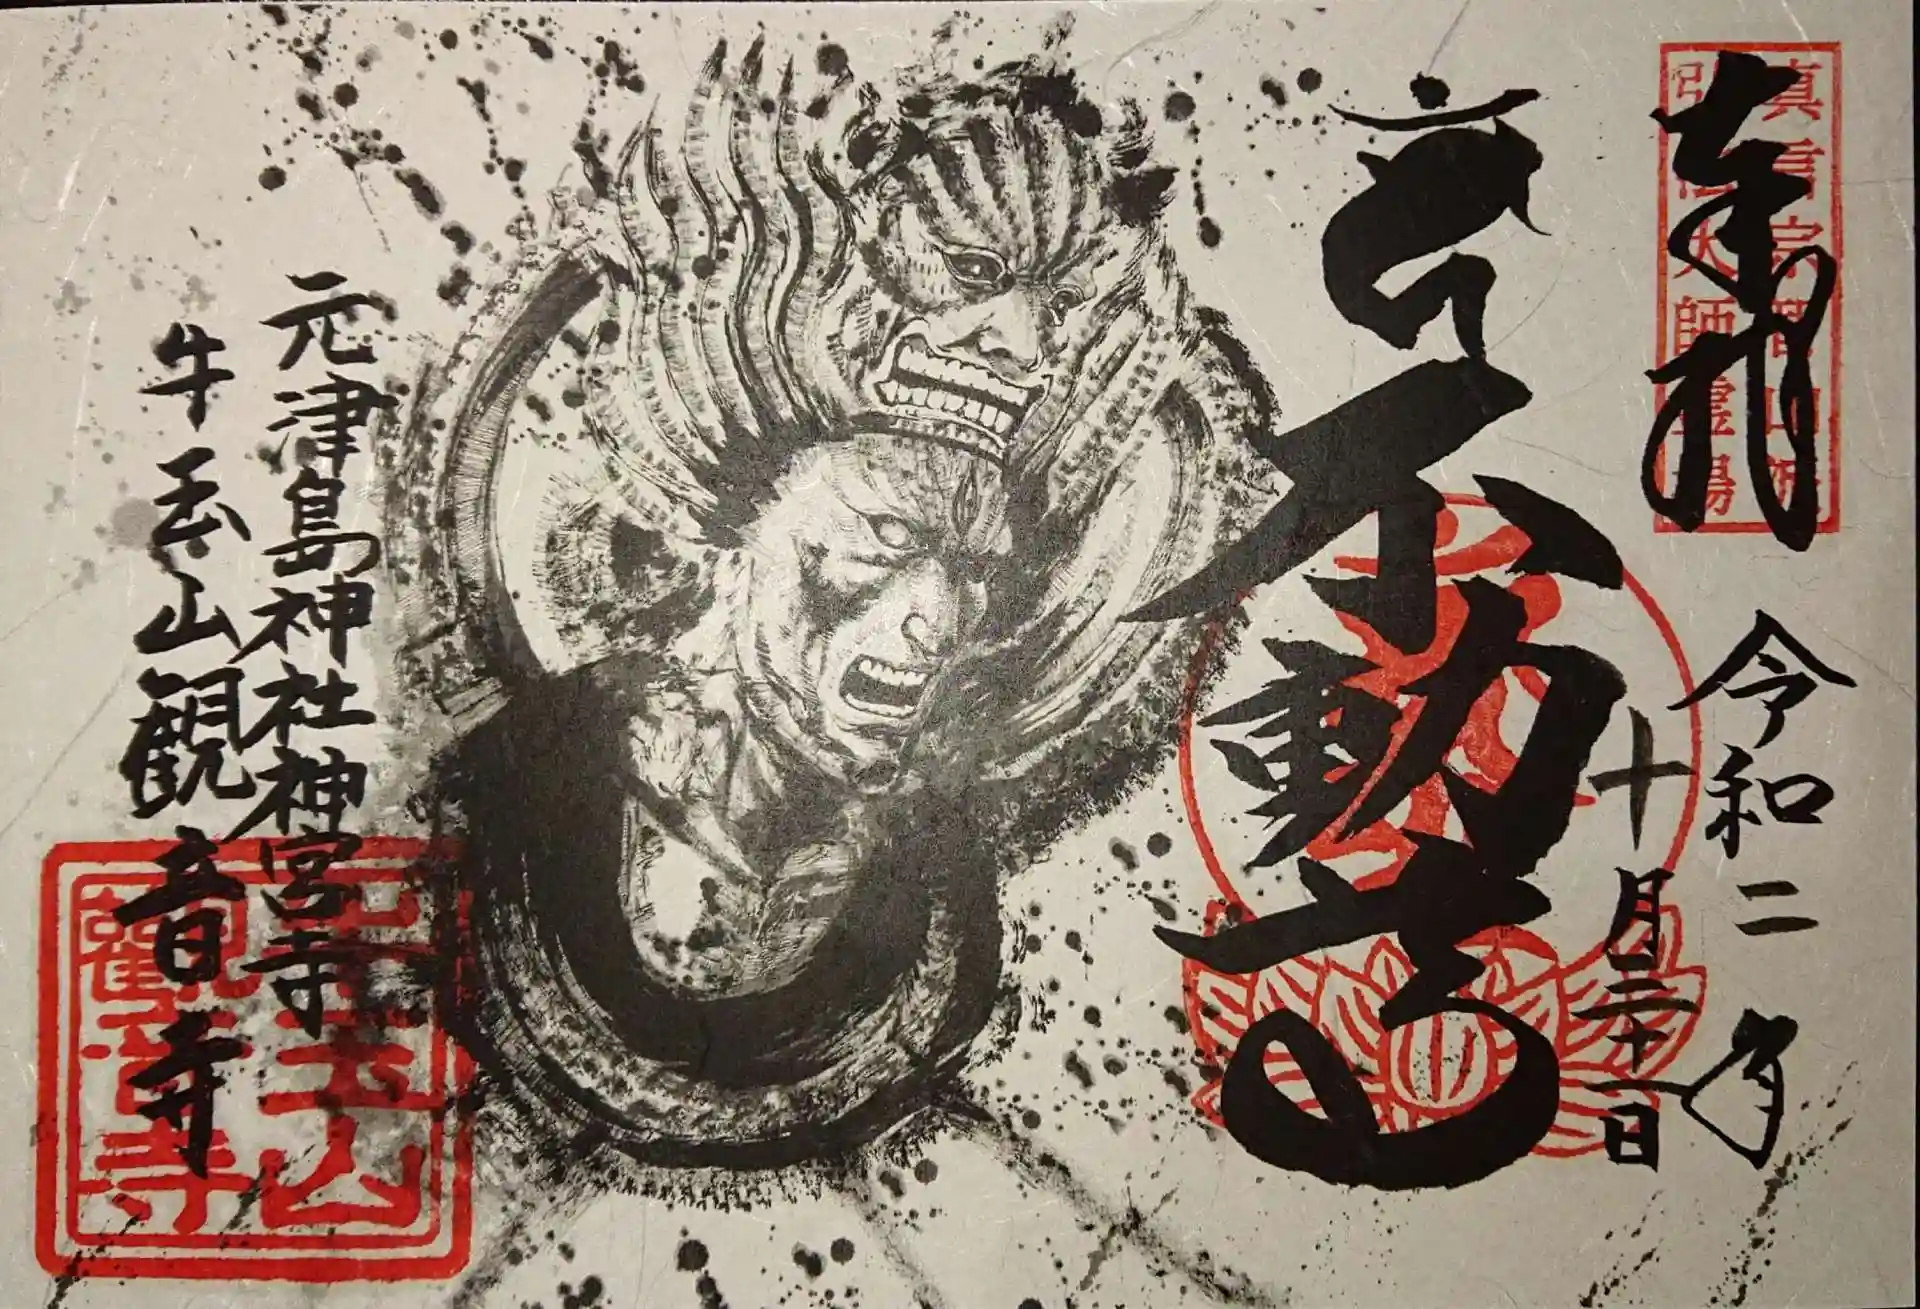 真言宗智山派
弘法大師霊場
奉拝
令和二年
十月三十一日
不動尊
元津島神社神宮寺
牛玉山観音寺
牛玉山
観音寺